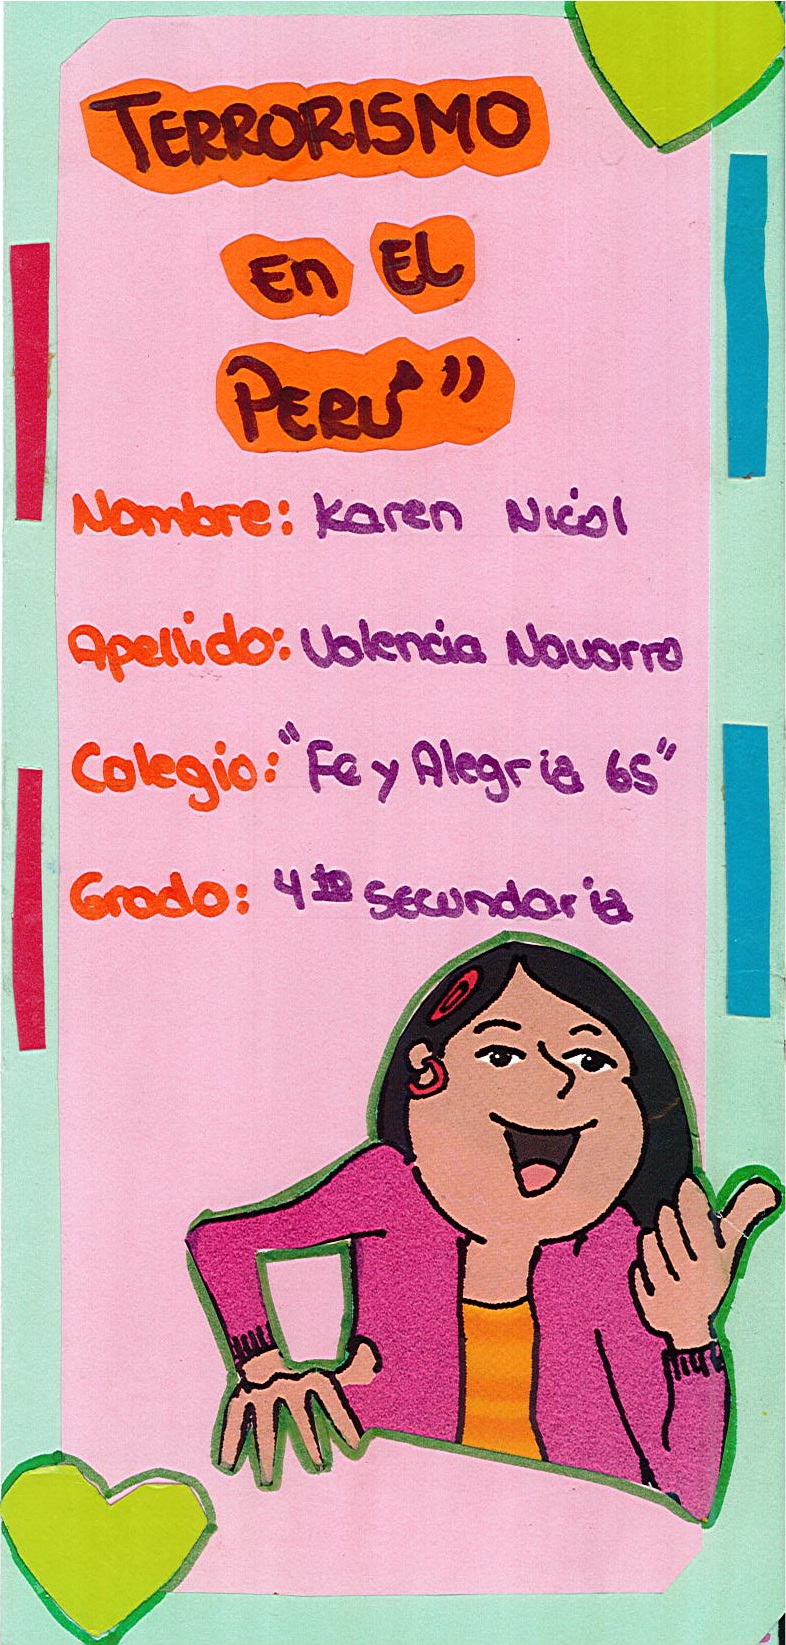 TERRORISMO
En EL
PERÚ"
Nombre: Karen Nicol
Apellido: Valencia Navarro
Colegio: "Fe y Alegria 65"
Grado: 4to secundaria